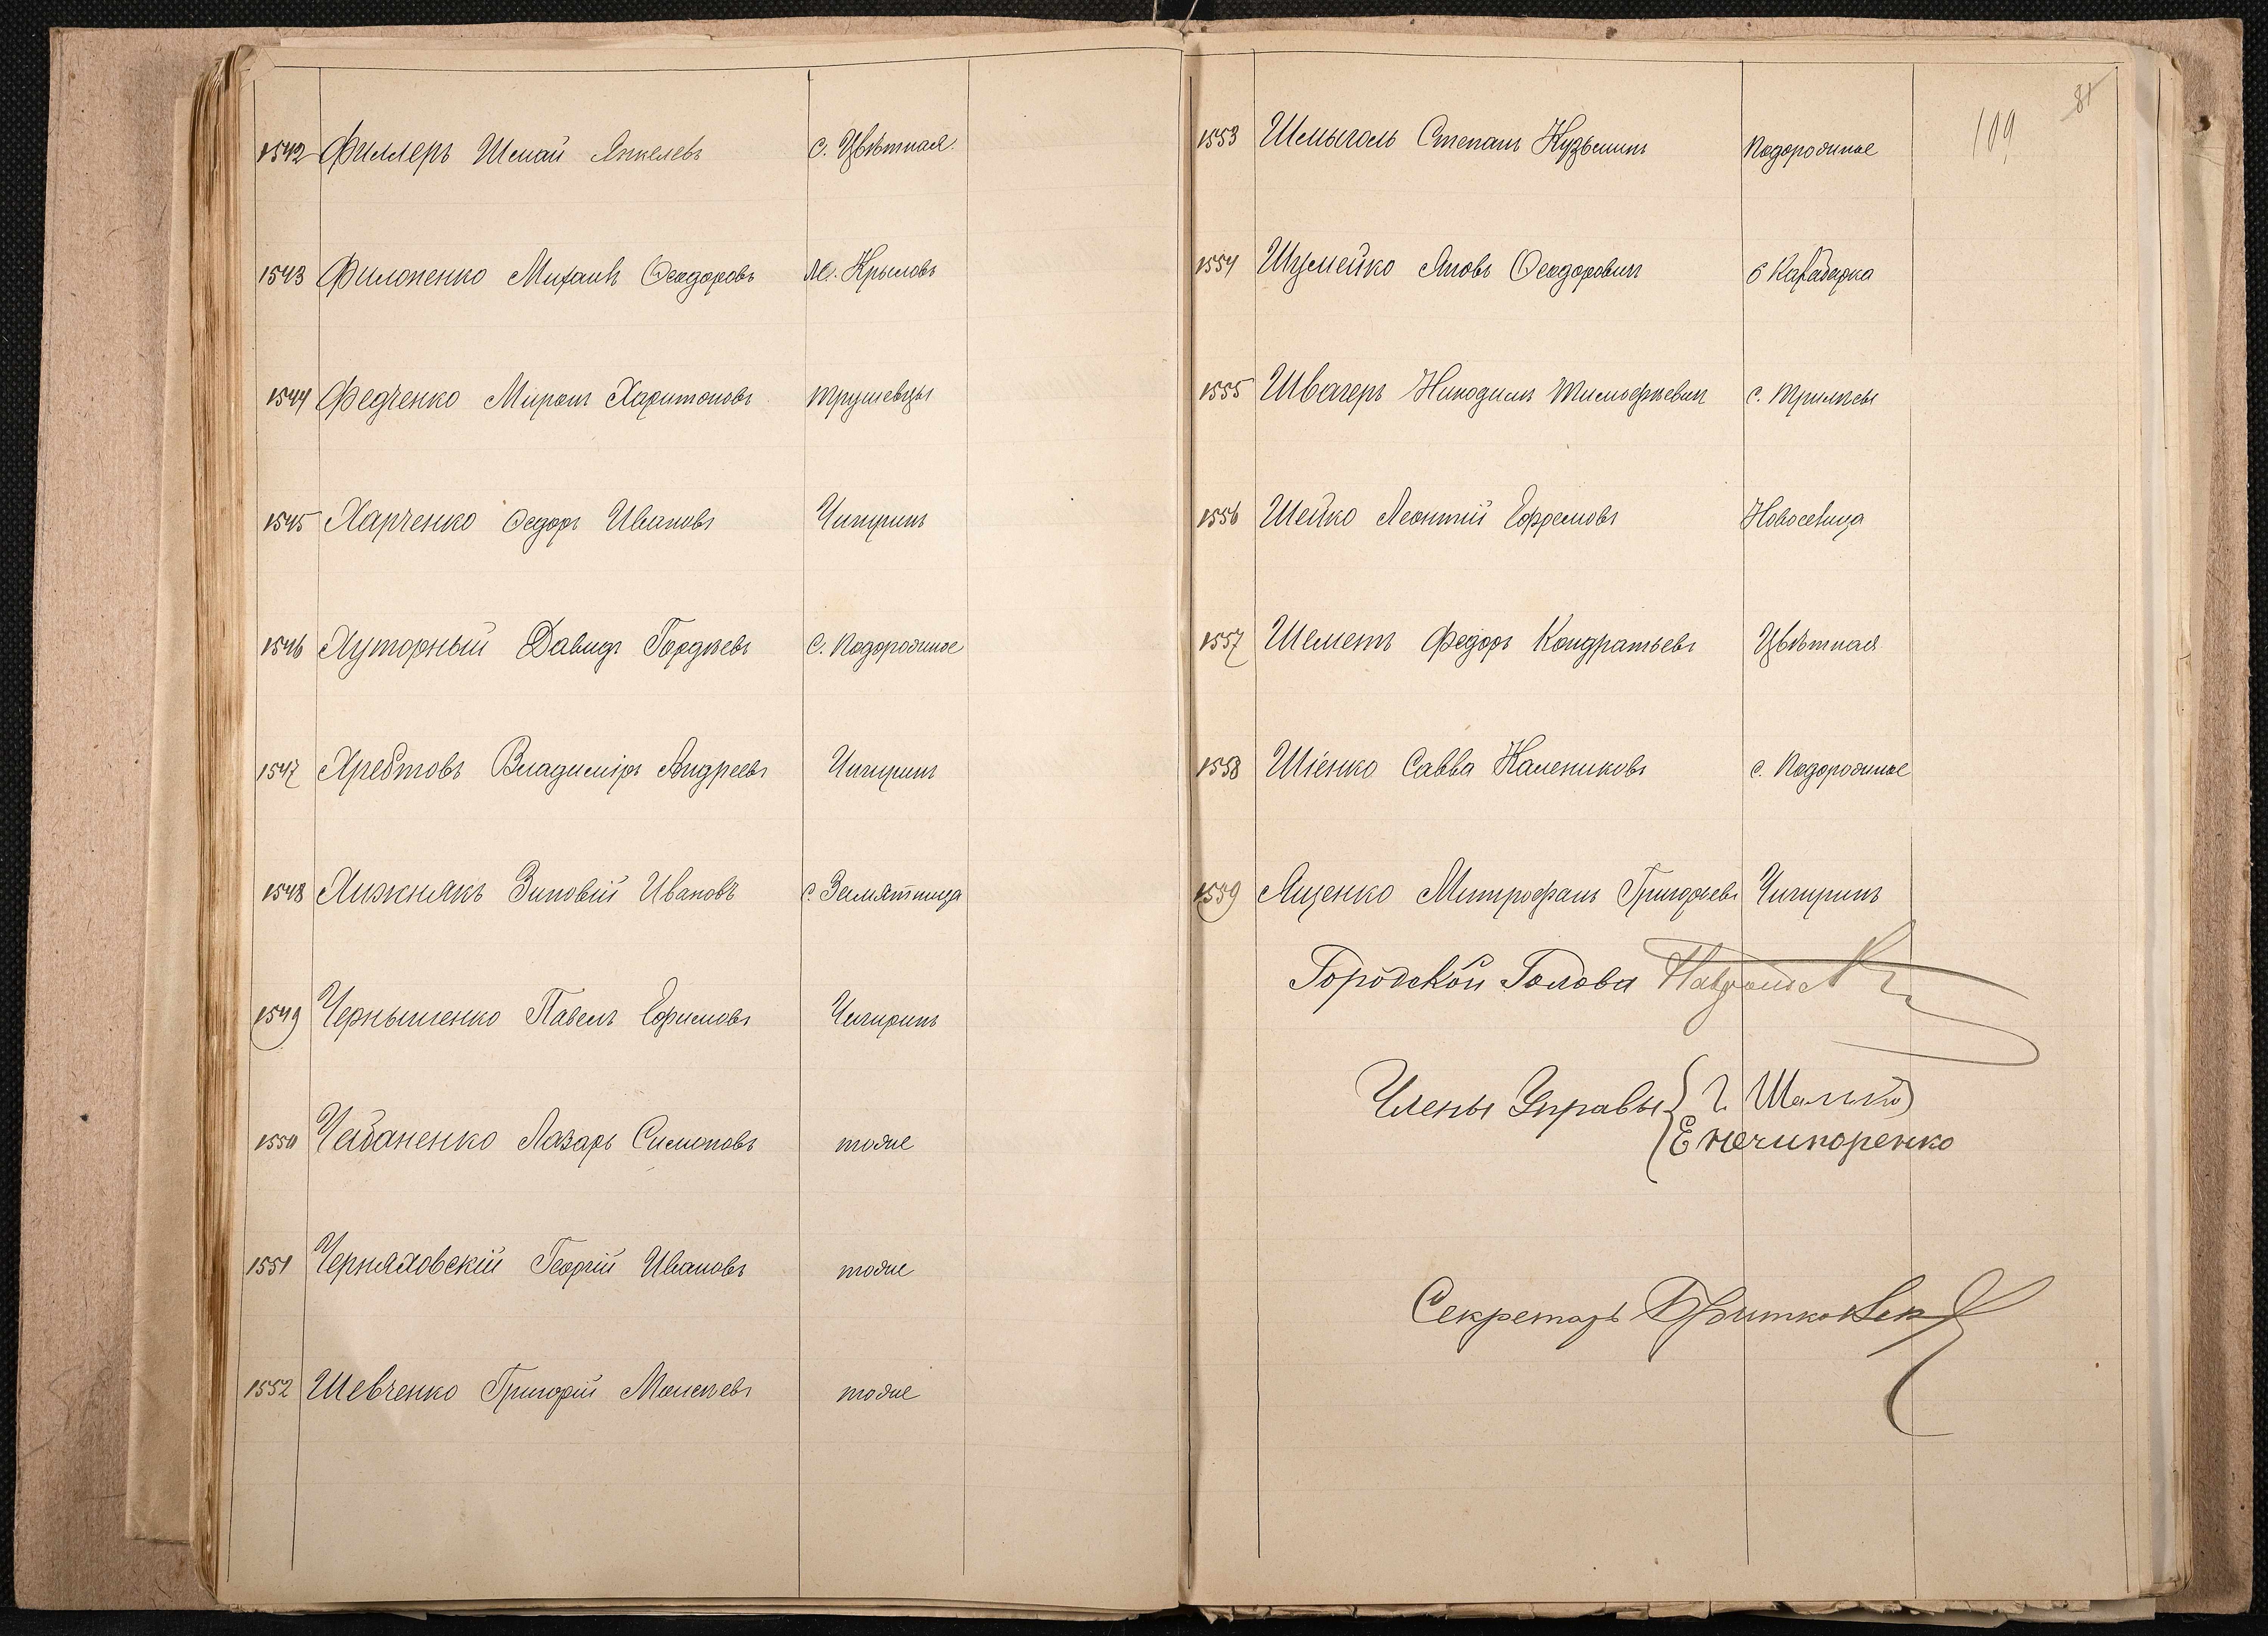 1542 Филлеръ Шмай Янкелевъ с. Цвѣтная.
1543 Филоненко Михаилъ Ѳеодоровъ М. Крыловъ
1544 Федченко Миронъ Харитоновъ Трушевцы
1545 Харченко Ѳедоръ Ивановъ Чигиринъ
1546 Хуторный Давидъ Гордѣевъ с. Подорожное
1547 Хребтовъ Владиміръ Андреевъ Чигиринъ
1548 Хижнякъ Зиновій Ивановъ с. Замятница
1549 Чернышенко Павелъ Ефимовъ Чигиринъ
1550 Чабаненко Лазарь Симоновъ тоже
1551 Черняховскій Георгій Ивановъ тоже
1552 Шевченко Григорій Моисеевъ тоже
81
109
1553 Шмыголь Степанъ Кузьминъ Подорожное
1554 Шумейко Яковъ Ѳеодоровичъ
1555 Швагеръ Никодимъ Тимофѣевичъ с. Трилѣсы
1556 Шейко Леонтій Ефремовъ Новоселица
1557 Шеметъ Федоръ Кондратьевъ Цвѣтная
1558 Шіенко Савва Калениковъ с. Подорожное
1559 Ященко Митрофанъ Григорьевъ Чигиринъ
Городской Голова
Члены Управы
Е Нечипоренко
Секретарь